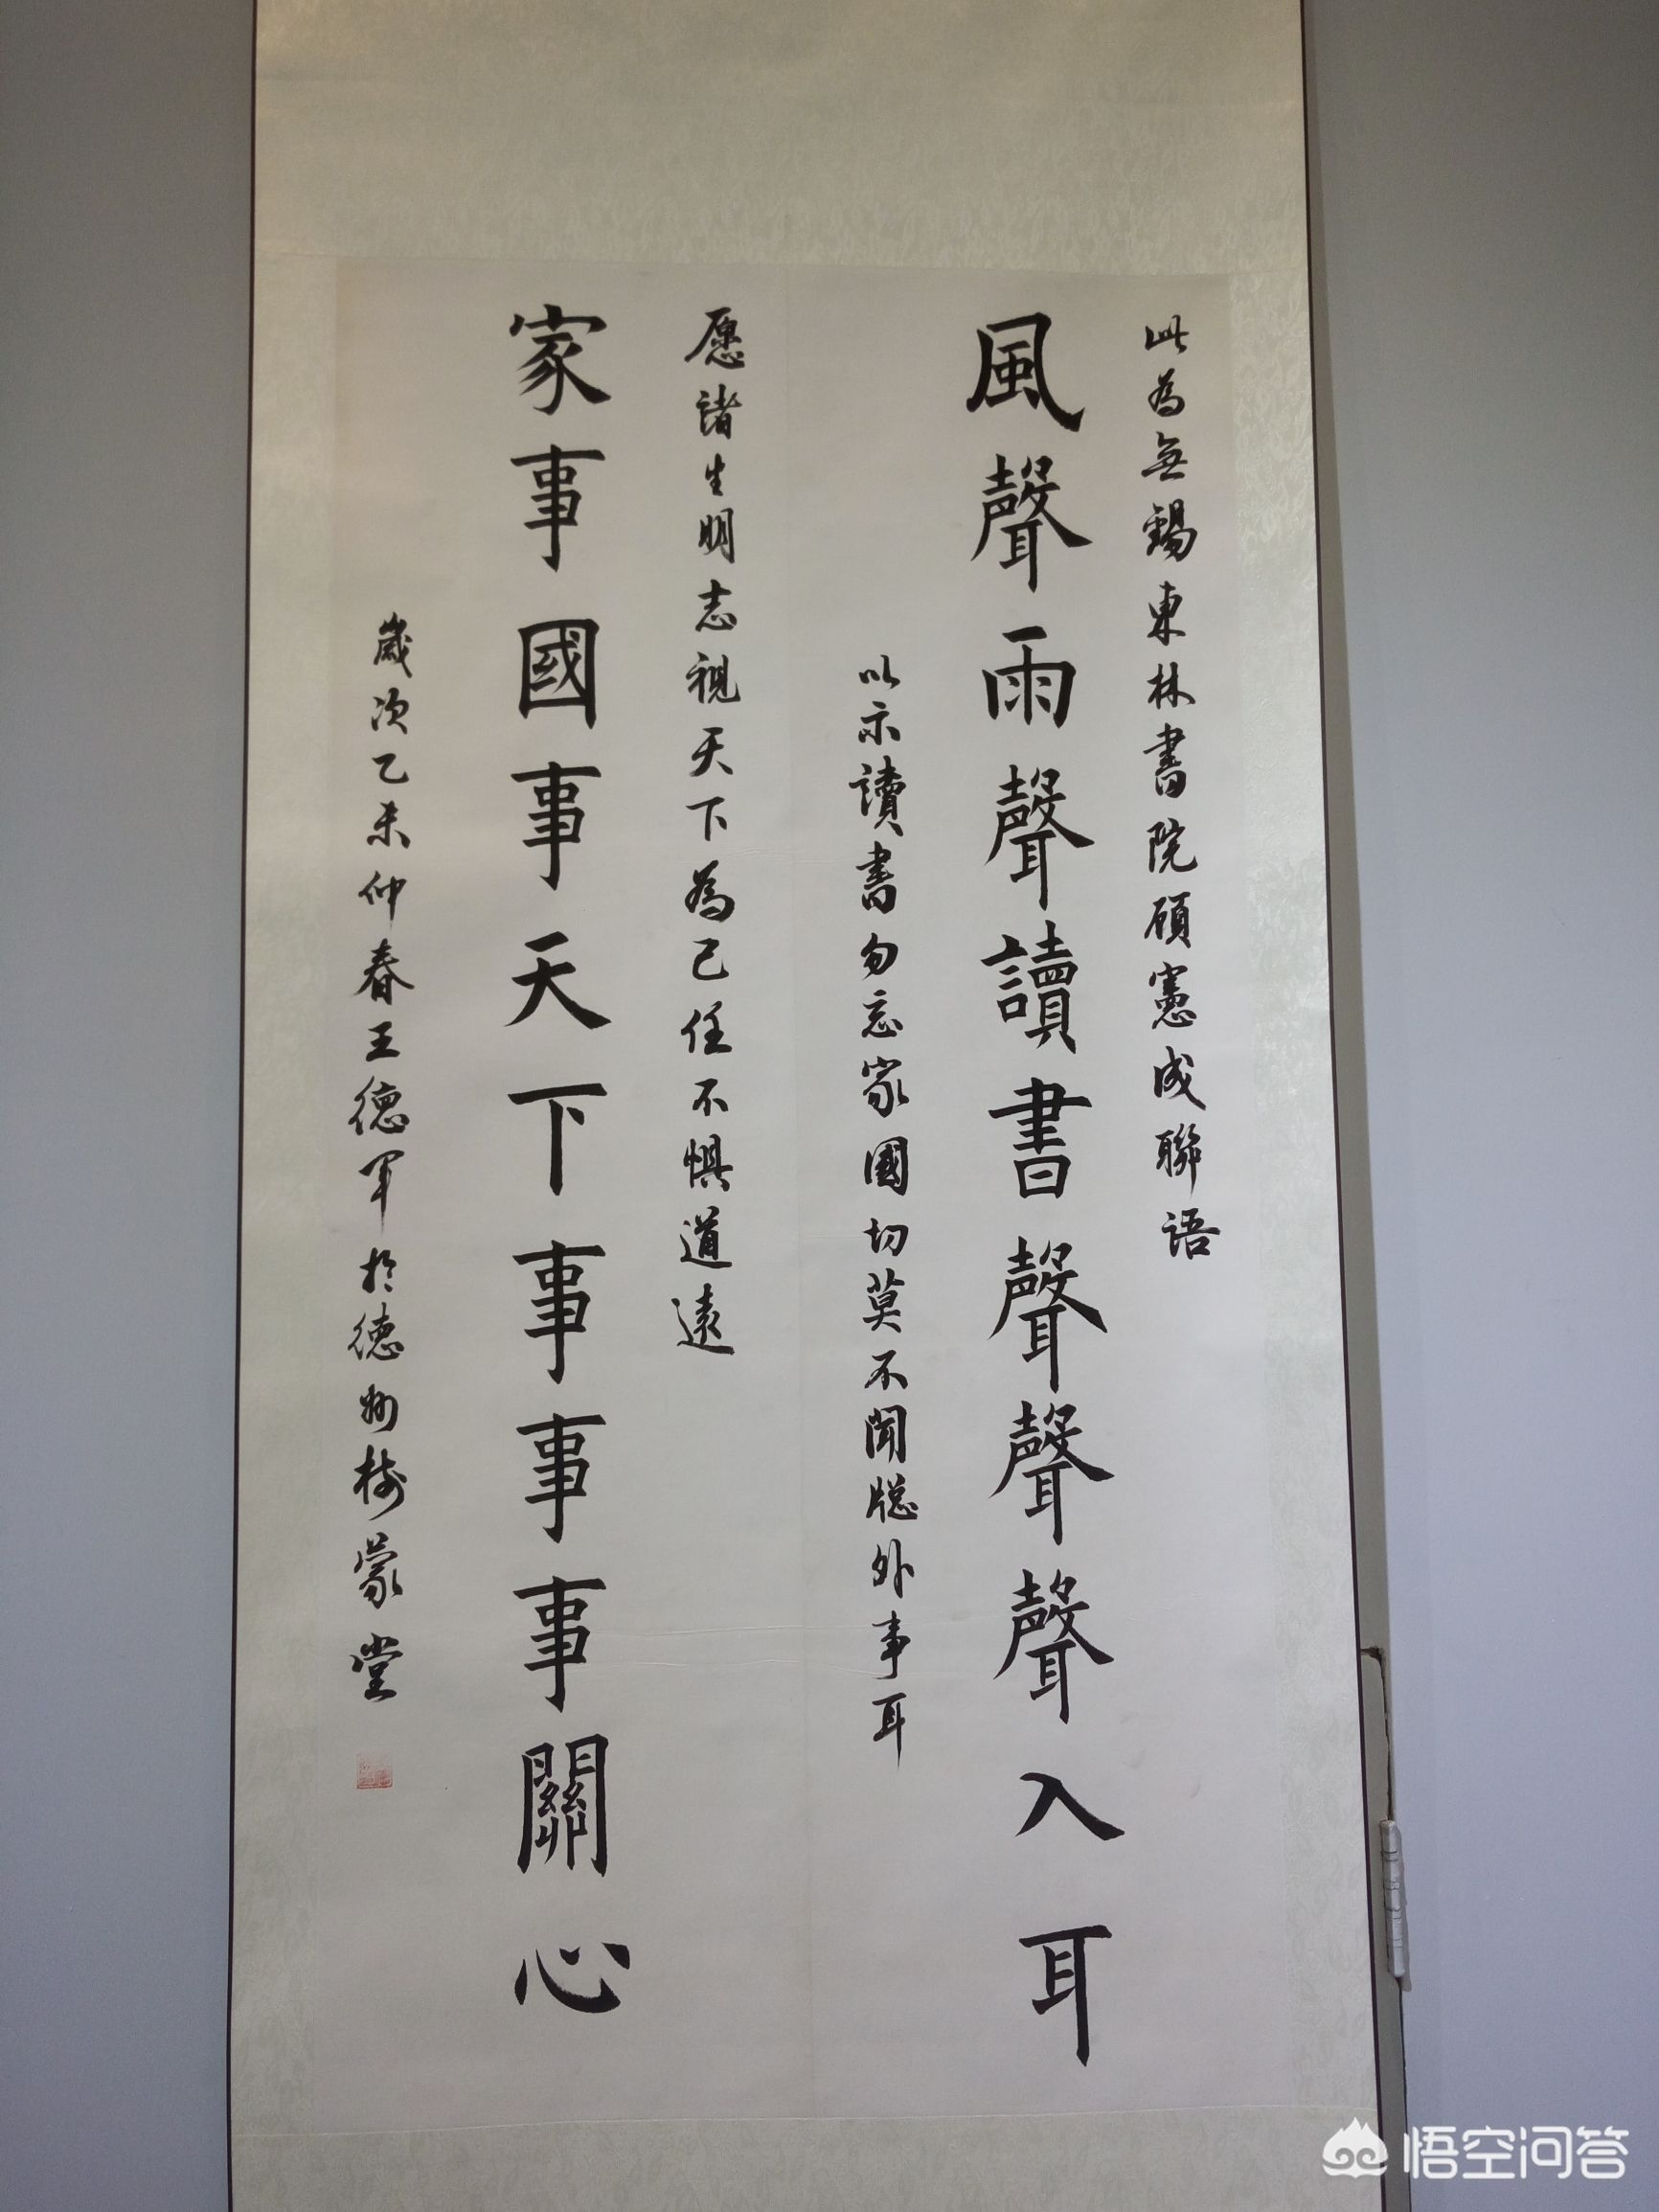 此為無錫東林書院顾憲成聯語
風聲雨聲讀書聲聲聲入耳
以示讀書勿忘家國切莫不聞聪外事耳
愿諸生明志視天下為己任不惧道遠
家事國事天下事事事關心
歲次乙未仲春王德军於德州樹蒙堂
悟空问答